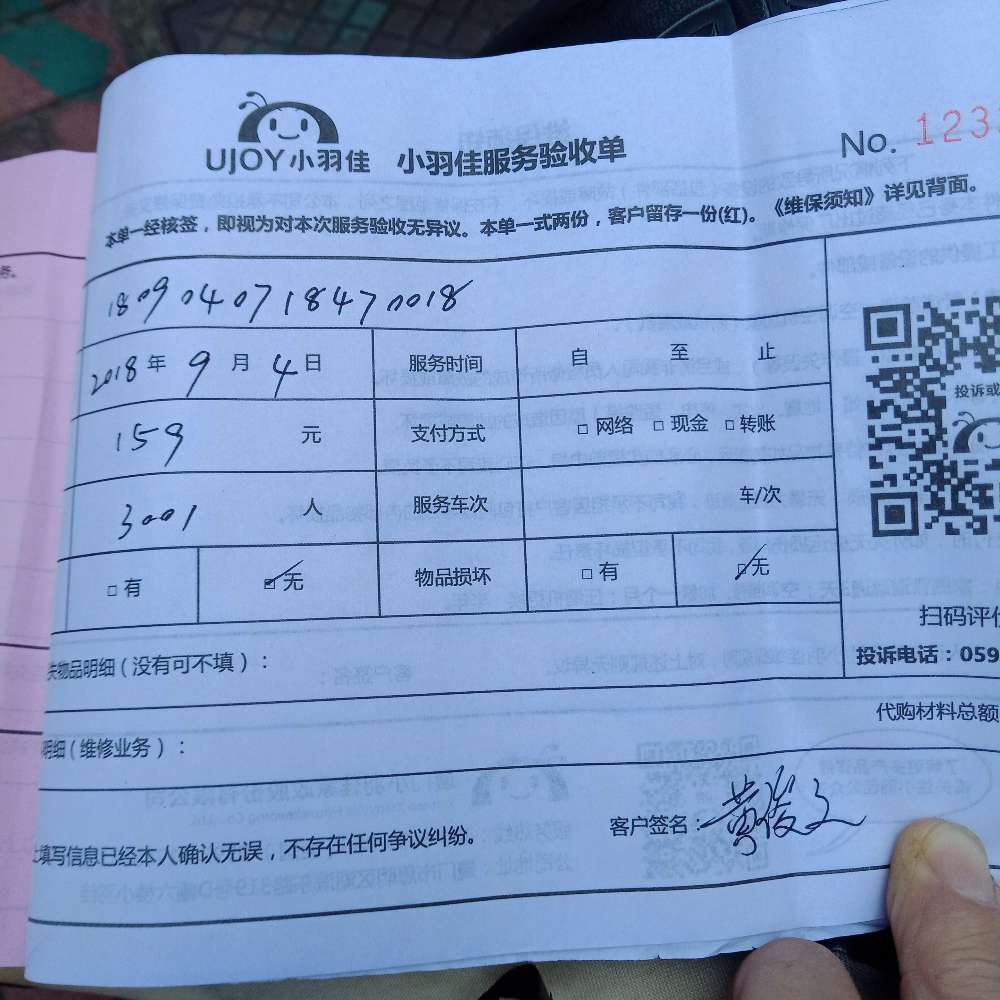 务。
UJOY小羽佳 小羽佳服务验收单 No. 123
本单一经核签，即视为对本次服务验收无异议。本单一式两份，客户留存一份(红)。《维保须知》详见背面。
1809040718470018
2018年 9月 4日 服务时间 自 至 止
159 元 支付方式 □ 网络 □ 现金 □ 转账
投诉或
3001 人 服务车次 车/次
□ 有 ☑ 无 物品损坏 □ 有 ☑ 无
扫码评价
失物品明细（没有可不填）：
投诉电话：059
代购材料总额
明细（维修业务）：
客户签名：黄俊文
填写信息已经本人确认无误，不存在任何争议纠纷。